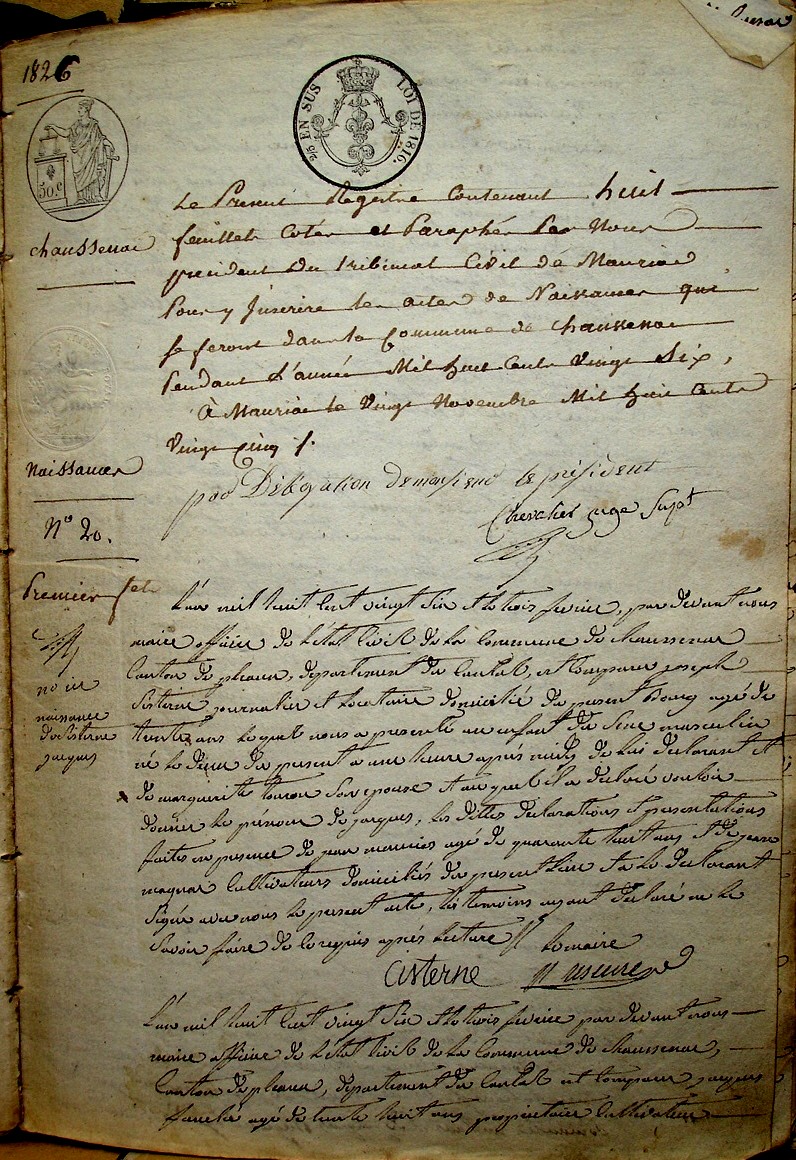 1826
2/5 EN SUS LOI DE 1816.
50.c
chaussenac
Le Présent Registre Contenant huit
feuillets Cotés et Paraphés Par Nous
president du tribunal Civil de Mauriac
Pour y Inscrire les actes de Naissances qui
se feront dans la Commune de chaussenac
Pendant l'année Mil huit Cents Vingt Six,
À Mauriac le Vingt Novembre Mil huit Cents
Vingt Cinq
Naissances
N° 20.
par Délégation de monsieur le président
Chevalier juge Supt
Premier
naissance
de Cisterne
jacques
L'an mil huit cent vingt Six et le trois février, par devant nous
maire officier de l'état civil de la Commune de Chaussenac
Canton de pleaux, département du Cantal, est Comparu joseph
Sisterne journalier et locataire domicilié du present Bourg agé de
trente ans lequel nous a presenté un enfant du Sexe masculin
né le deux du present a une heure après midy de lui declarant et
de marguerite son epouse et auquel il a declaré vouloir
donner le prenom de jacques, les dittes declarations et presentations
faites en presence de jean agé de quarante huit ans et de jean
cultivateurs domiciliés du present lieu et a le declarant
Signé avec nous le present acte, les temoins ayant declaré ne le
Savoir faire de ce requis après lecture le maire
Cisterne
L'an mil huit cent vingt Six et le trois février par devant nous
maire officier de l'état civil de la Commune de Chaussenac,
Canton de pleaux, département du Cantal est Comparu jacques
agé de trente huit ans propriétaire Cultivateur